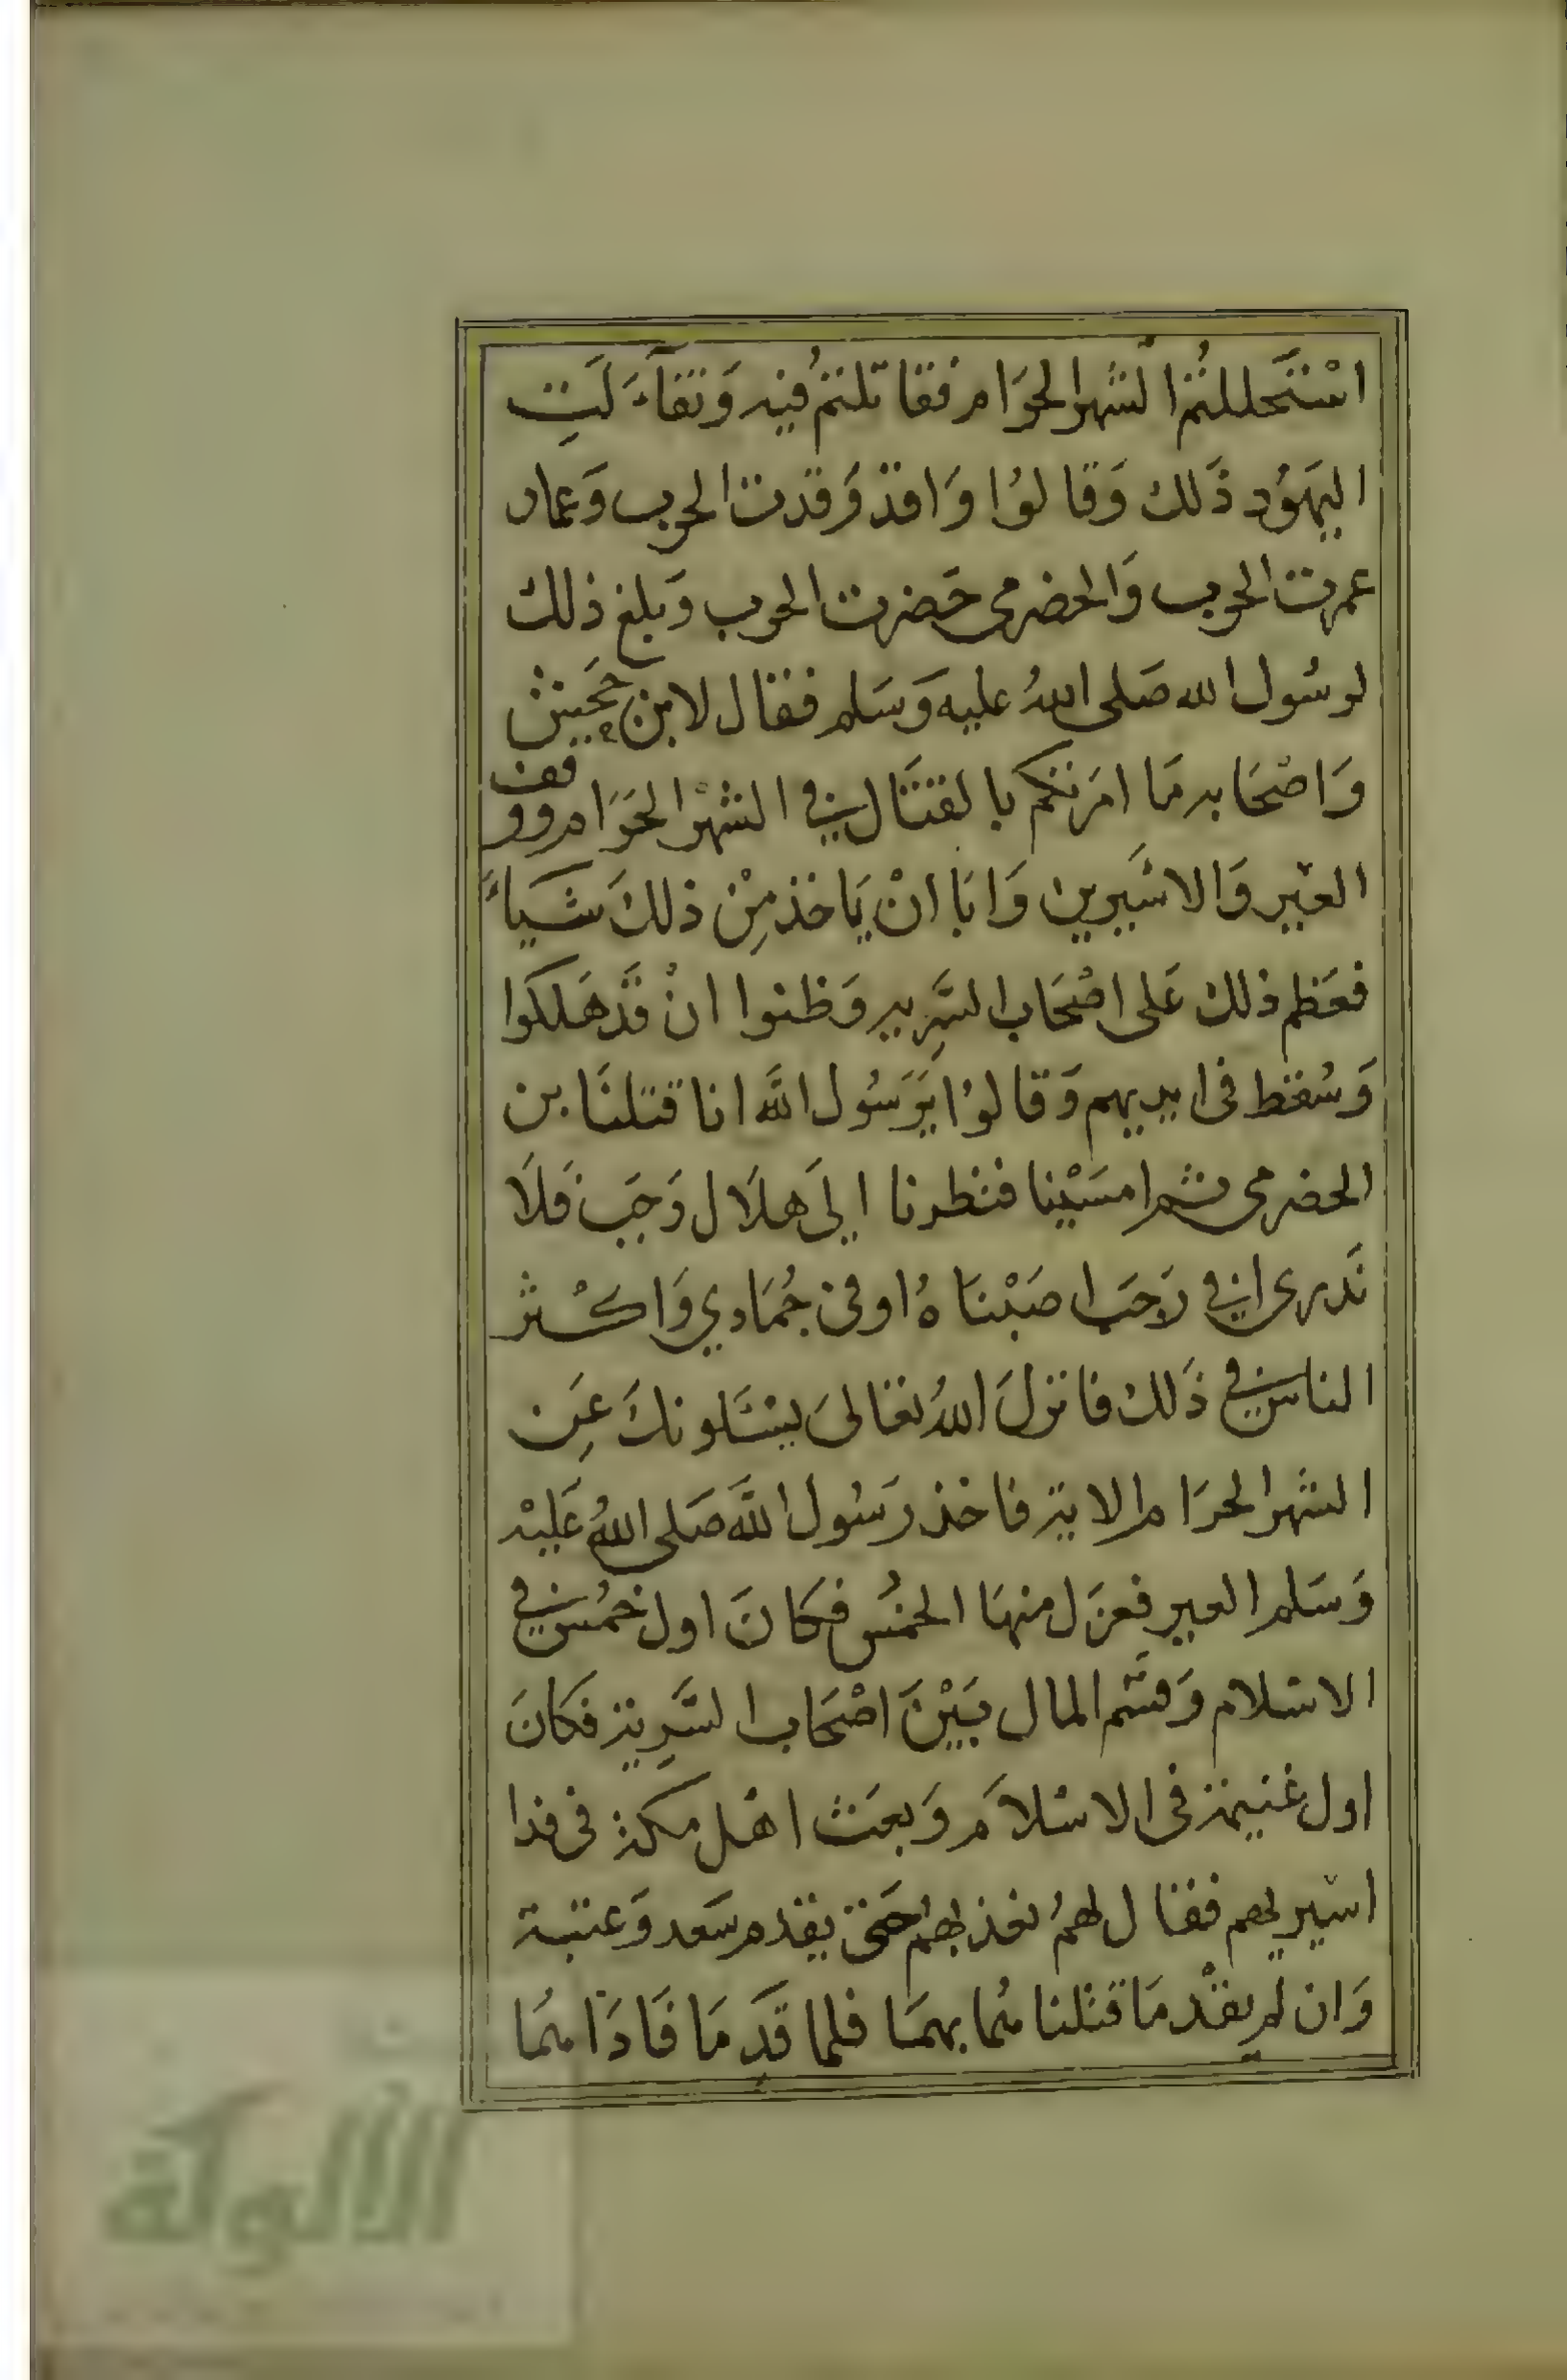 اسْتَحللتُم الشهر الحرَام فقاتلتمُ فيه وَتفآءَلَتِ
اليَهوُد ذَلك وَقالوُا وَاقد وَقدت الحرب وَعمار
عمرت الحرب وَالحضرمى حَضرت الحرب وَبلغ ذلك
لرسُول الله صَلى اللهُ عليه وَسَلم فقال لابن جَحيش
وَاصْحَابه مَا امَرتكم بالقتَال في الشهْر الحَرَام ووقف
العير وَالاسَيرين وَابَا انْ يَاخذ مِنْ ذلكَ شَياءً
فعَظم ذلك عَلى اصْحَاب السَّرِيه وَظنوا انْ قَد هَلكوا
وَسُقط فى ايديهم وَقالوُا يَرَسُول الله انا قتلنَا بن
الحضرمى ثم امسَيْنا فنظرنا اِلى هلاَل رَجَب فَلاَ
نَدرى افي رَجَب اصَبْنَاهُ او فى جُمَادي وَاكْثر
الناس في ذَلك فانزلَ اللهُ تعَالىَ يسْئَلونكَ عَنِ
الشهر الحرَام الاية فاخذ رَسُول الله صَلى اللهُ عَليْه
وَسَلم العير فعزَل منهَا الخمُس فكانَ اول خمُس في
الاسْلام وَقسَم المال بَيْنَ اصْحَاب السَّرِية فكانَ
اول غنيمة فى الاسْلاَم وَبعَث اهْل مكة فى فدا
اسيريهم فقال لهمُ نعذبهمُ حَتى يقدم سَعد وَعتبة
وَان لم يقدمَا قتلنا هُما بهمَا فلما قَدِمَا فَادَاهُمَا
الألوكة